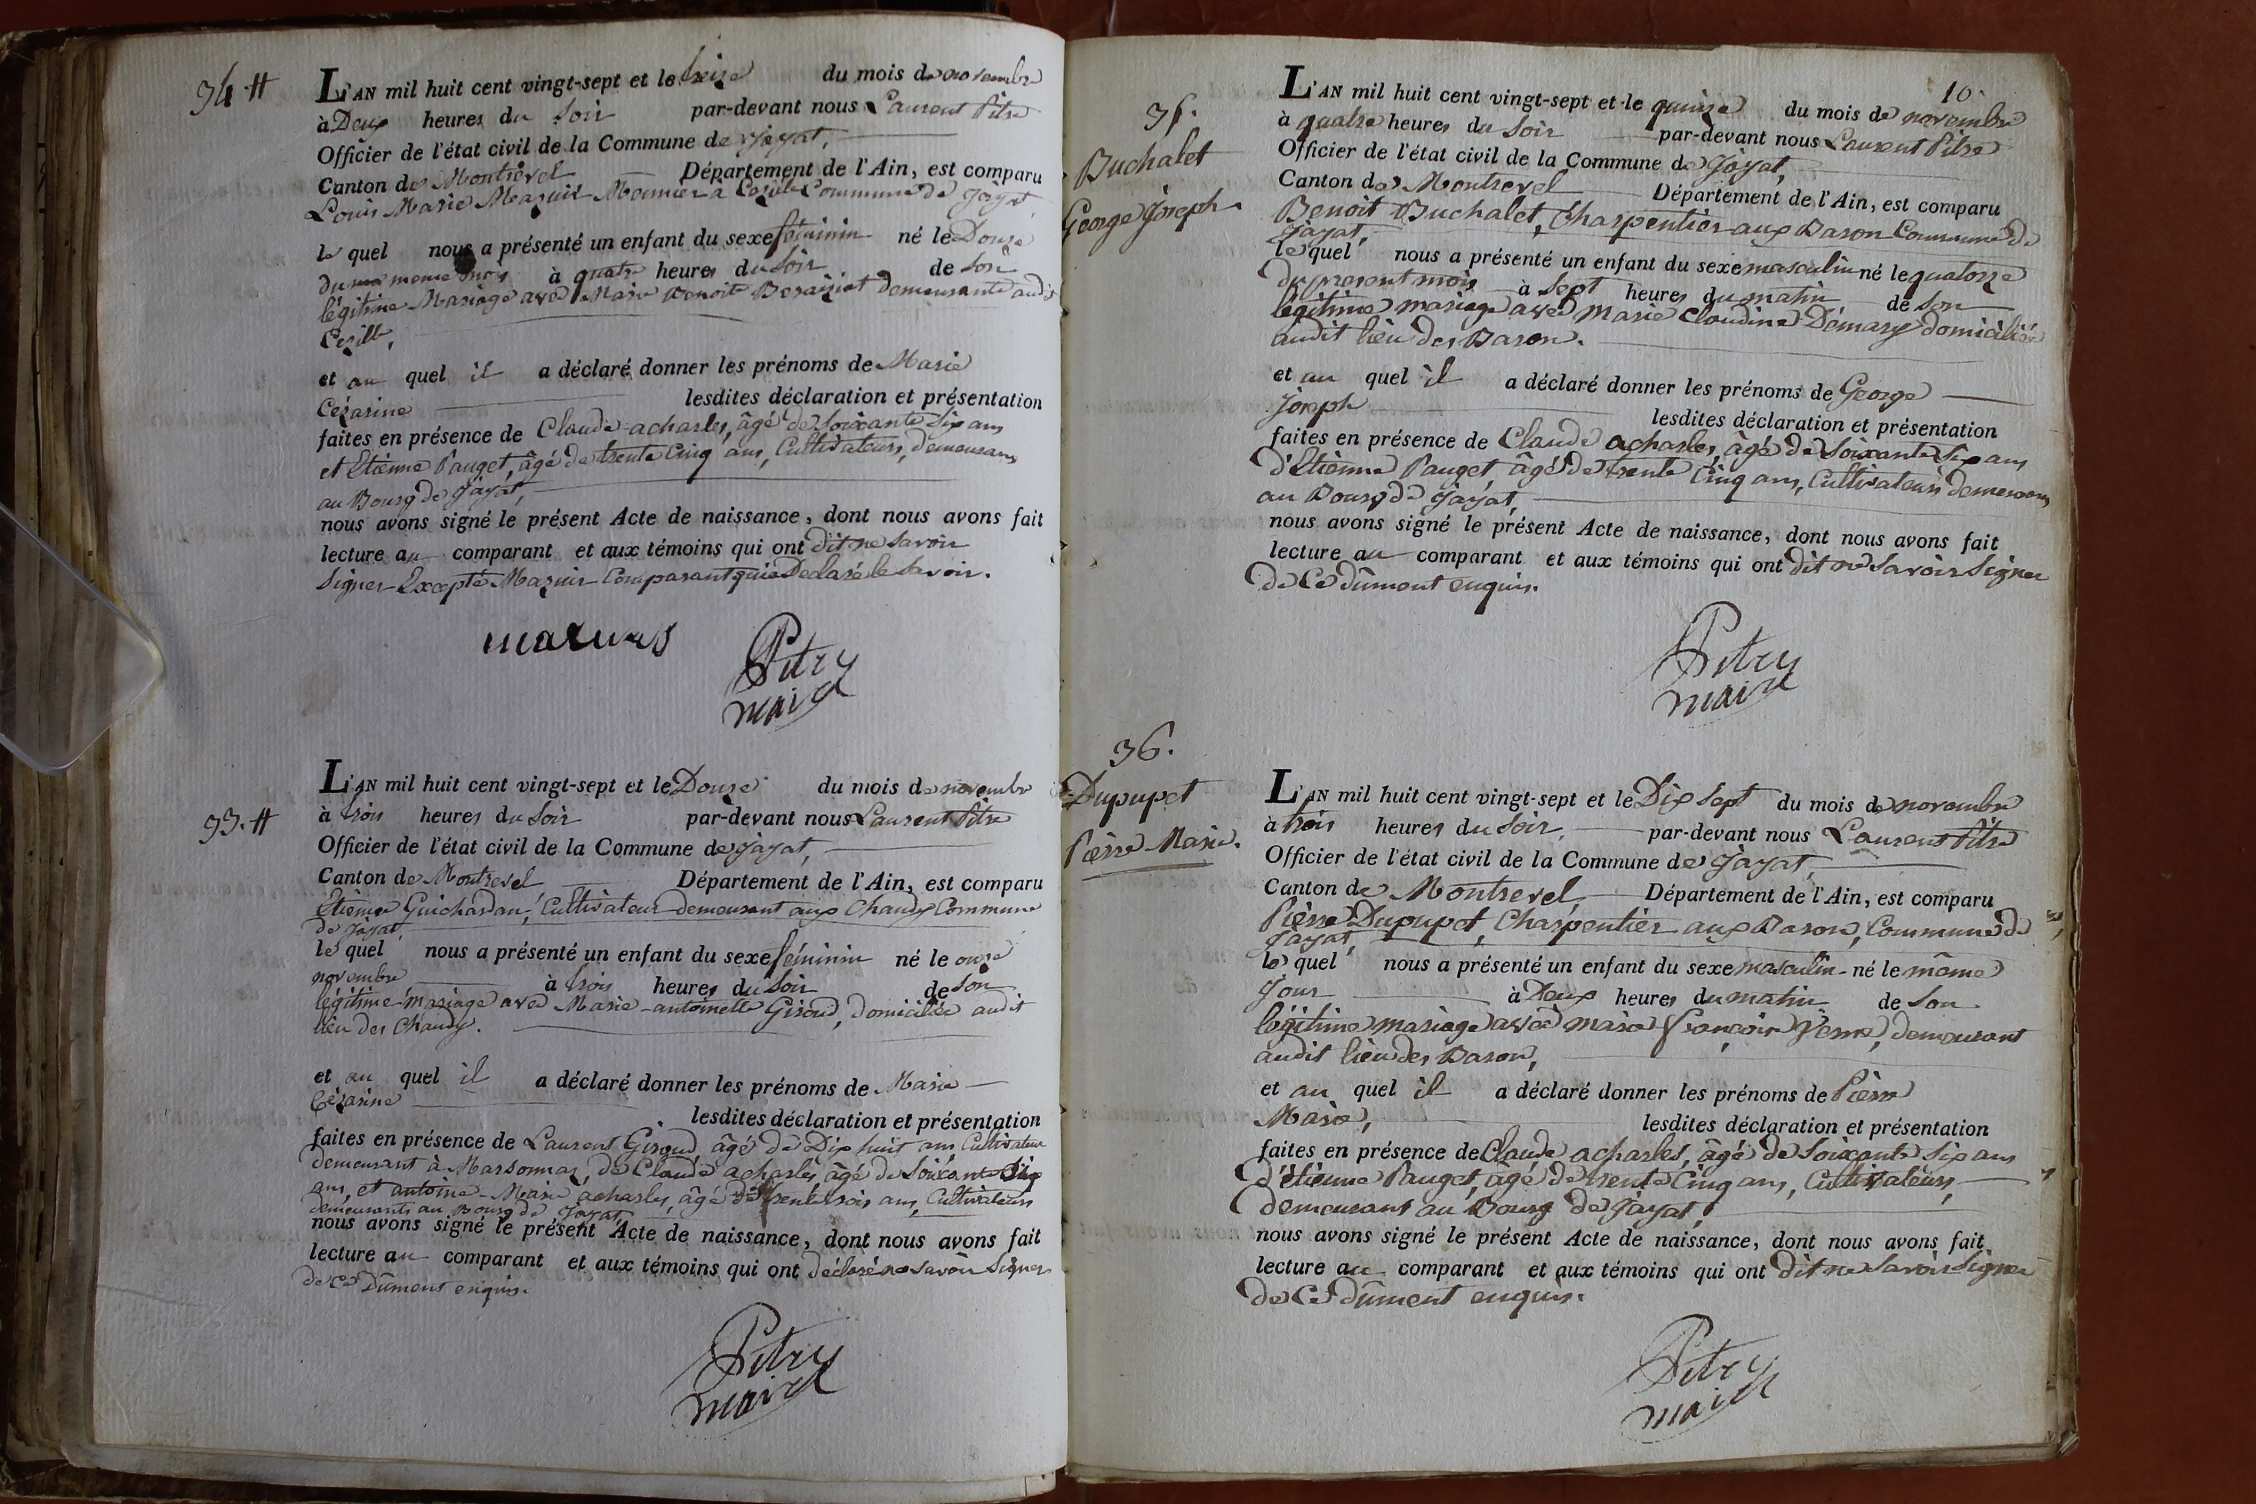 34. #
L'AN mil huit cent vingt-sept et le treize du mois de novembre
à Deux heures du soir par-devant nous Laurent Pitre
Officier de l'état civil de la Commune de Jayat,
Canton de Montrevel Département de l'Ain, est comparu
Louis Marie Mazuir Meunier à Cezille Commune de Jayat
le quel nous a présenté un enfant du sexe féminin né le Douze
du même mois à quatre heures du soir de son
légitime Mariage avec Marie Benoite demeurante audit
Cezille,
et au quel il a déclaré donner les prénoms de Marie
Cezarine lesdites déclaration et présentation
faites en présence de Claude acharles, âgé de Soixante Six ans
et Etienne Pauget, âgé de trente Cinq ans, Cultivateurs, demeurans
au Bourg de Jayat,
nous avons signé le présent Acte de naissance, dont nous avons fait
lecture au comparant et aux témoins qui ont dit ne savoir
signer Excepté Mazuir Comparant qui a Declaré le savoir.
Pitre
maire
33. #
L'AN mil huit cent vingt-sept et le Douze du mois de novembre
à trois heures du soir par-devant nous Laurent Pitre
Officier de l'état civil de la Commune de Jayat,
Canton de Montrevel Département de l'Ain, est comparu
Etienne Guichardan, Cultivateur demeurant aux Chaudy Commune
de Jayat,
le quel nous a présenté un enfant du sexe féminin né le onze
novembre à trois heures du soir de son
légitime mariage avec Marie-antoinette Giroud, domiciliée audit
lieu des Chaudy.
et au quel il a déclaré donner les prénoms de Marie
Cezarine
lesdites déclaration et présentation
faites en présence de Laurent Giroud âgé de Dix huit ans Cultivateur
demeurant à Marsonnaz, de Claude acharles, âgé de Soixante Six
ans, et antoine-Marie acharles, âgé de trente trois ans, Cultivateurs
demeurants au Bourg de Jayat,
nous avons signé le présent Acte de naissance, dont nous avons fait
lecture au comparant et aux témoins qui ont déclaré ne savoir signer
de ce Dûment enquis.
Pitre
maire
10.
35.
Buchalet
George Joseph.
L'AN mil huit cent vingt-sept et le quinze du mois de novembre
à quatre heures du soir par-devant nous Laurent Pitre
Officier de l'état civil de la Commune de Jayat,
Canton de Montrevel Département de l'Ain, est comparu
Benoit Buchalet, Charpentier aux Baron Commune de
Jayat,
le quel nous a présenté un enfant du sexe masculin né le quatorze
du présent mois à sept heures du matin de son
légitime mariage avec Marie Claudine Démary domiciliée
audit lieu des Baron.
et au quel il a déclaré donner les prénoms de George
Joseph
lesdites déclaration et présentation
faites en présence de Claude acharles, âgé de Soixante Six ans
d'Etienne Pauget âgé de trente Cinq ans, Cultivateurs demeurans
au Bourg de Jayat,
nous avons signé le présent Acte de naissance, dont nous avons fait
lecture au comparant et aux témoins qui ont dit ne savoir signer
de Ce dûment enquis.
Pitre
maire
36.
Dupupet
Pierre Marie.
L'AN mil huit cent vingt-sept et le Dix sept du mois de novembre
à trois heures du soir, par-devant nous Laurent Pitre
Officier de l'état civil de la Commune de Jayat,
Canton de Montrevel Département de l'Ain, est comparu
Pierre Dupupet, Charpentier aux Baron, Commune de
Jayat,
le quel nous a présenté un enfant du sexe masculin né le même
Jour à Deux heures du matin de son
légitime mariage avec marie françoise demeurant
audit lieu des Baron,
et au quel il a déclaré donner les prénoms de Pierre
Marie, lesdites déclaration et présentation
faites en présence de Claude acharles, âgé de Soixante six ans
d'Etienne Pauget, âgé de trente Cinq ans, Cultivateurs,
demeurant au Bourg de Jayat,
nous avons signé le présent Acte de naissance, dont nous avons fait
lecture au comparant et aux témoins qui ont dit ne savoir signer
de Ce dûment enquis.
Pitre
maire